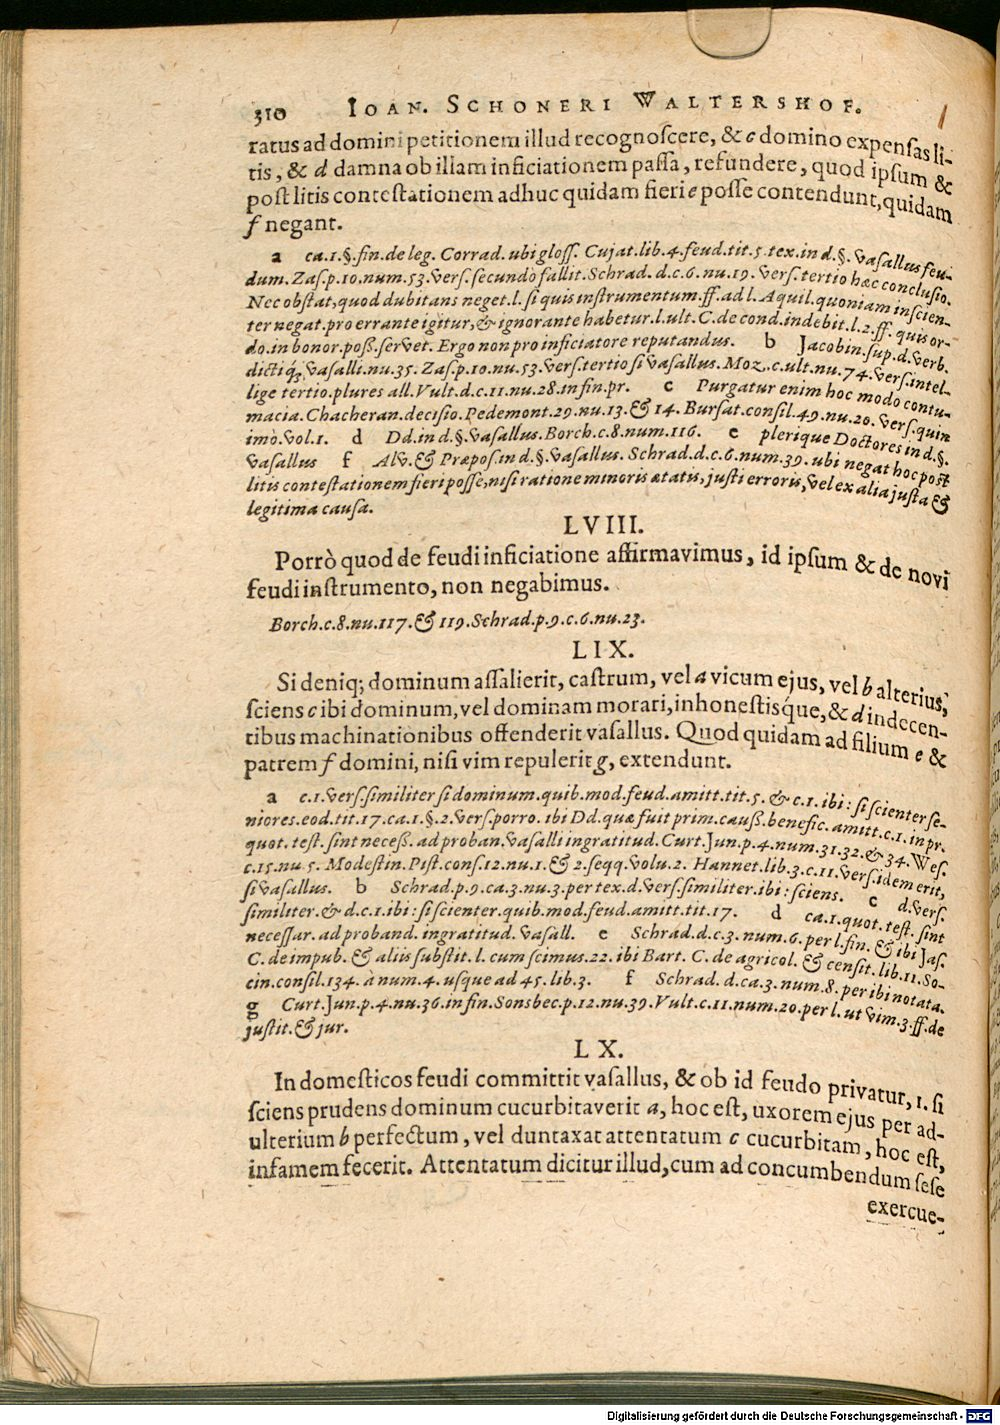 310 IOAN. SCHONERI WALTERSHOF.
ratus ad domini petitionem illud recognoſcere, & c domino expenſas li-
tis, & d damna ob illam inficiationem paſſa, refundere, quod ipſum &
poſt litis conteſtationem adhuc quidam fieri e poſſe contendunt, quidam
f negant.
a ca.1.§.fin.de leg. Corrad. ubi gloſſ. Cujat.lib.4.feud.tit.5.tex.in d.§. vaſallus feu-
dum. Zaſ.p.10.num.53.verſ.ſecundo fallit. Schrad. d.c.6. nu.19. verſ.tertio hæc concluſio.
Nec obſtat, quod dubitans neget.l. ſi quis inſtrumentum.ff.ad l. Aquil.quoniam inſcien-
ter negat.pro errante igitur, & ignorante habetur.l.ult. C. de cond.indebit.l.2.ff. quis or-
do.in bonor.poß.ſervet. Ergo non pro inficiatore reputandus. b Jacobin.ſup.d.verb.
dictiq́; vaſalli.nu.35. Zaſ.p.10.nu.53.verſ.tertio ſi vaſallus. Moz.c.ult.nu.74.verſ.intel-
lige tertio.plures all.Vult.d.c.11.nu.28.in fin.pr. c Purgatur enim hoc modo contu-
macia. Chacheran.deciſio.Pedemont.29.nu.13.& 14. Burſat.conſil.49.nu.20. verſ.quin
imò.vol.1. d Dd.in d.§.vaſallus.Borch.c.8.num.116. e plerique Doctores in d.§.
vaſallus f Alv.& Præpoſ.in d.§.vaſallus. Schrad.d.c.6.num.39. ubi negat hoc poſt
litis conteſtationem fieri poſſe, niſi ratione minoris ætatis, juſti erroris, vel ex alia juſta &
legitima cauſa.
LVIII.
Porrò quod de feudi inficiatione affirmavimus, id ipſum & de novi
feudi inſtrumento, non negabimus.
Borch.c.8.nu.117.& 119.Schrad.p.9.c.6.nu.23.
LIX.
Si deniq; dominum aſſalierit, caſtrum, vel a vicum ejus, vel b alterius,
ſciens c ibi dominum, vel dominam morari, inhoneſtisque, & d indecen-
tibus machinationibus offenderit vaſallus. Quod quidam ad filium e &
patrem f domini, niſi vim repulerit g, extendunt.
a c.1.verſ.ſimiliter ſi dominum.quib.mod.feud.amitt.tit.5. & c.1. ibi: ſi ſcienter ſe-
niores.eod.tit.17.ca.1.§.2.verſ.porro. ibi Dd.quæ fuit prim.cauß.benefic. amitt.c.1.in pr.
quot. teſt. ſint neceß. ad proban.vaſalli ingratitud. Curt.Jun.p.4.num.31.32.& 34. Weſ.
c.15.nu.5. Modeſtin. Piſt.conſ.12.nu.1.& 2.ſeqq.volu.2. Hannet.lib.3.c.11.verſ.idem erit,
ſi vaſallus. b Schrad.p.9.ca.3.nu.3.per tex.d.verſ.ſimiliter.ibi: ſciens. c d.verſ.
ſimiliter.& d.c.1.ibi: ſi ſcienter.quib.mod.feud.amitt.tit.17. d ca.1.quot.teſt. ſint
neceſſar. ad proband. ingratitud. vaſall. e Schrad.d.c.3. num.6. per l.fin. & ibi Jaſ.
C. de impub. & aliis ſubſtit. l. cum ſcimus.22. ibi Bart. C. de agricol. & cenſit. lib.11. So-
cin.conſil.134. à num.4. uſque ad 45. lib.3. f Schrad. d.ca.3.num.8. per ibi notata.
g Curt.Jun.p.4.nu.36.in fin.Sonsbec.p.12.nu.39.Vult.c.11.num.20.per l. ut vim.3.ff.de
juſtit.& jur.
LX.
In domeſticos feudi committit vaſallus, & ob id feudo privatur, 1. ſi
ſciens prudens dominum cucurbitaverit a, hoc eſt, uxorem ejus per ad-
ulterium b perfectum, vel duntaxat attentatum c cucurbitam, hoc eſt,
infamem fecerit. Attentatum dicitur illud, cum ad concumbendum ſeſe
exercue-
Digitalisierung gefördert durch die Deutsche Forschungsgemeinschaft - DFG